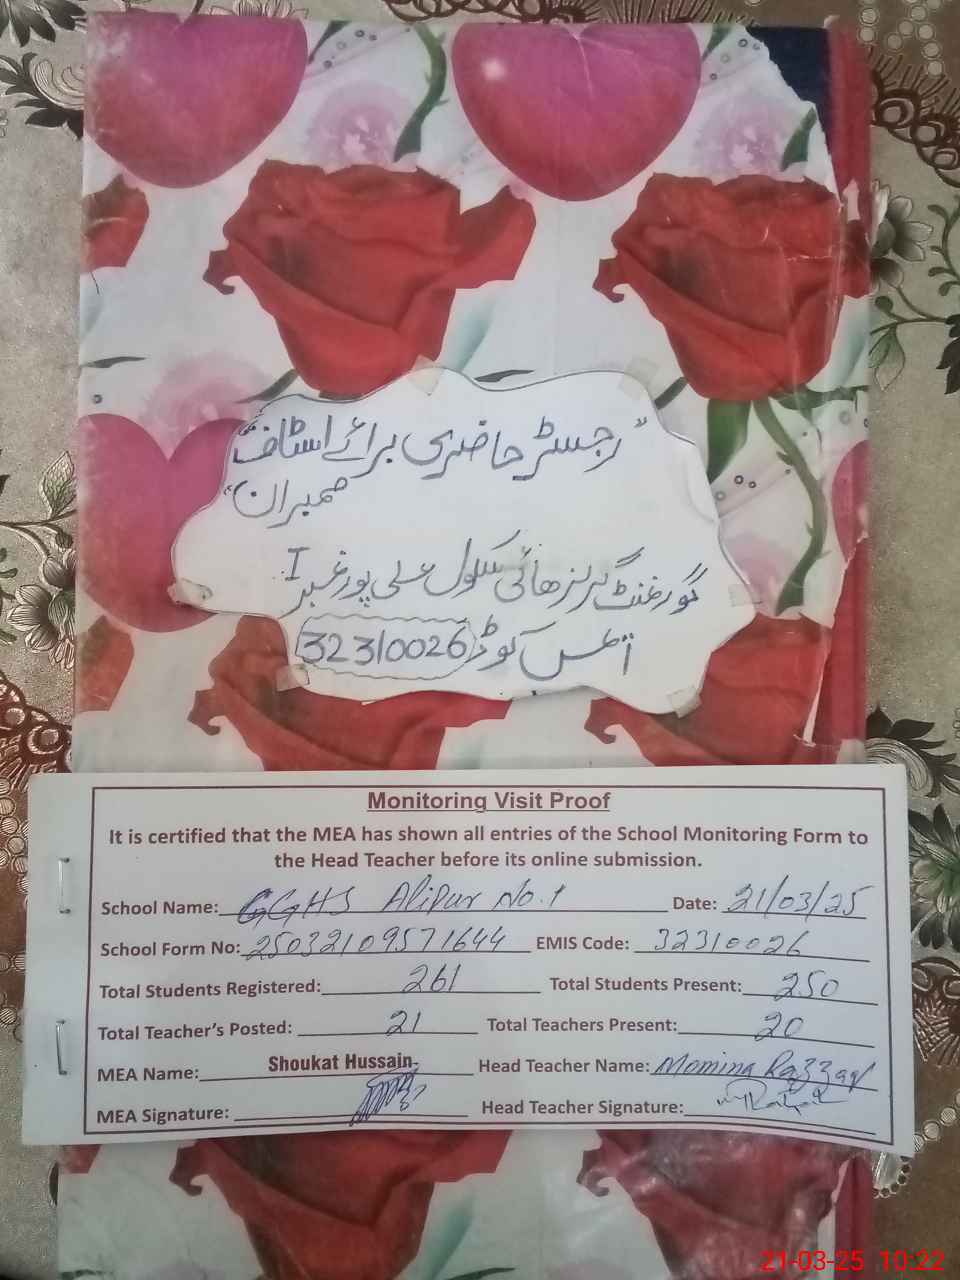 "رجسٹر حاضری برائے اسٹاف
ممبران"
گورنمنٹ گرلز ھائی سکول علی پور نمبر I
ائمس کوڈ 32310026
Monitoring Visit Proof
It is certified that the MEA has shown all entries of the School Monitoring Form to
the Head Teacher before its online submission.
School Name: GGHS Alipur No.1 Date: 21/03/25
School Form No: 25032109571644 EMIS Code: 32310026
Total Students Registered: 261 Total Students Present: 250
Total Teacher's Posted: 21 Total Teachers Present: 20
MEA Name: Shoukat Hussain Head Teacher Name: Momina Razzaq
MEA Signature: Head Teacher Signature:
21-03-25 10:22